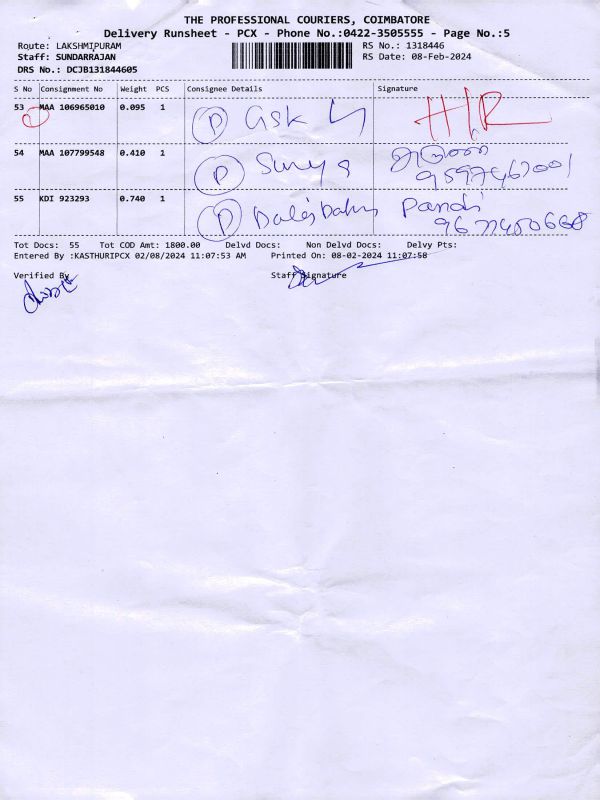 THE PROFESSIONAL COURIERS, COIMBATORE
Delivery Runsheet - PCX - Phone No.:0422-3505555 - Page No.:5
Route: LAKSHMIPURAM RS No.: 1318446
Staff: SUNDARRAJAN RS Date: 08-Feb-2024
DRS No.: DCJB131844605
S No Consignment No Weight PCS Consignee Details Signature
53 MAA 106965010 0.095 1 P Gsk H/R
54 MAA 107799548 0.410 1 P Surya
55 KDI 923293 0.740 1 P Pandi
Tot Docs: 55 Tot COD Amt: 1800.00 Delvd Docs: Non Delvd Docs: Delvy Pts:
Entered By :KASTHURIPCX 02/08/2024 11:07:53 AM Printed On: 08-02-2024 11:07:58
Verified By Staff Signature